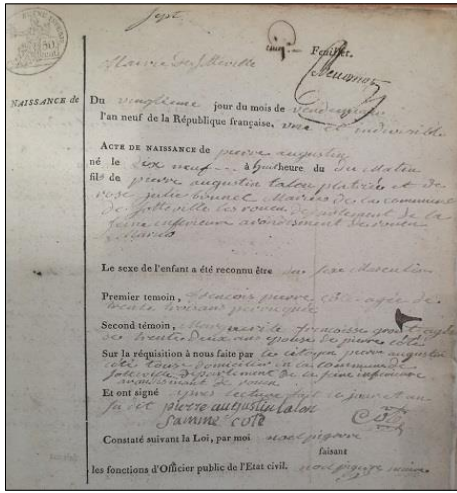 sept
cinq. Feuillet.
Mairie de
NAISSANCE de
Du vingtieme jour du mois de vendemiaire
l'an neuf de la République française, une et indivisible
ACTE DE NAISSANCE de pierre augustin
né le dix neuf à huit heure du du Matin
fils de pierre augustin talon platrier et de
rose julie bonnet Mariés de la commune
de Sotteville les rouen departement de la
seine inferieure arondisment de rouen
Le sexe de l'enfant a été reconnu être du sexe Masculin
Premier temoin, francois pierre côté agée de
trente trois ans
Second témoin, Marguerite francoisse agée
de trente deux ans epouse de pierre coté
Sur la réquisition à nous faite par le citoyen pierre augustin
tous domicilier en la commune de
Sotteville departement de la seine inferieure
arondissment de rouen
Et ont signé apres lecture fait le jour et an
su dit pierre augustin talon
famme coté
Constaté suivant la Loi, par moi noel pigerre
faisant
les fonctions d'Officier public de l'Etat civil. noel